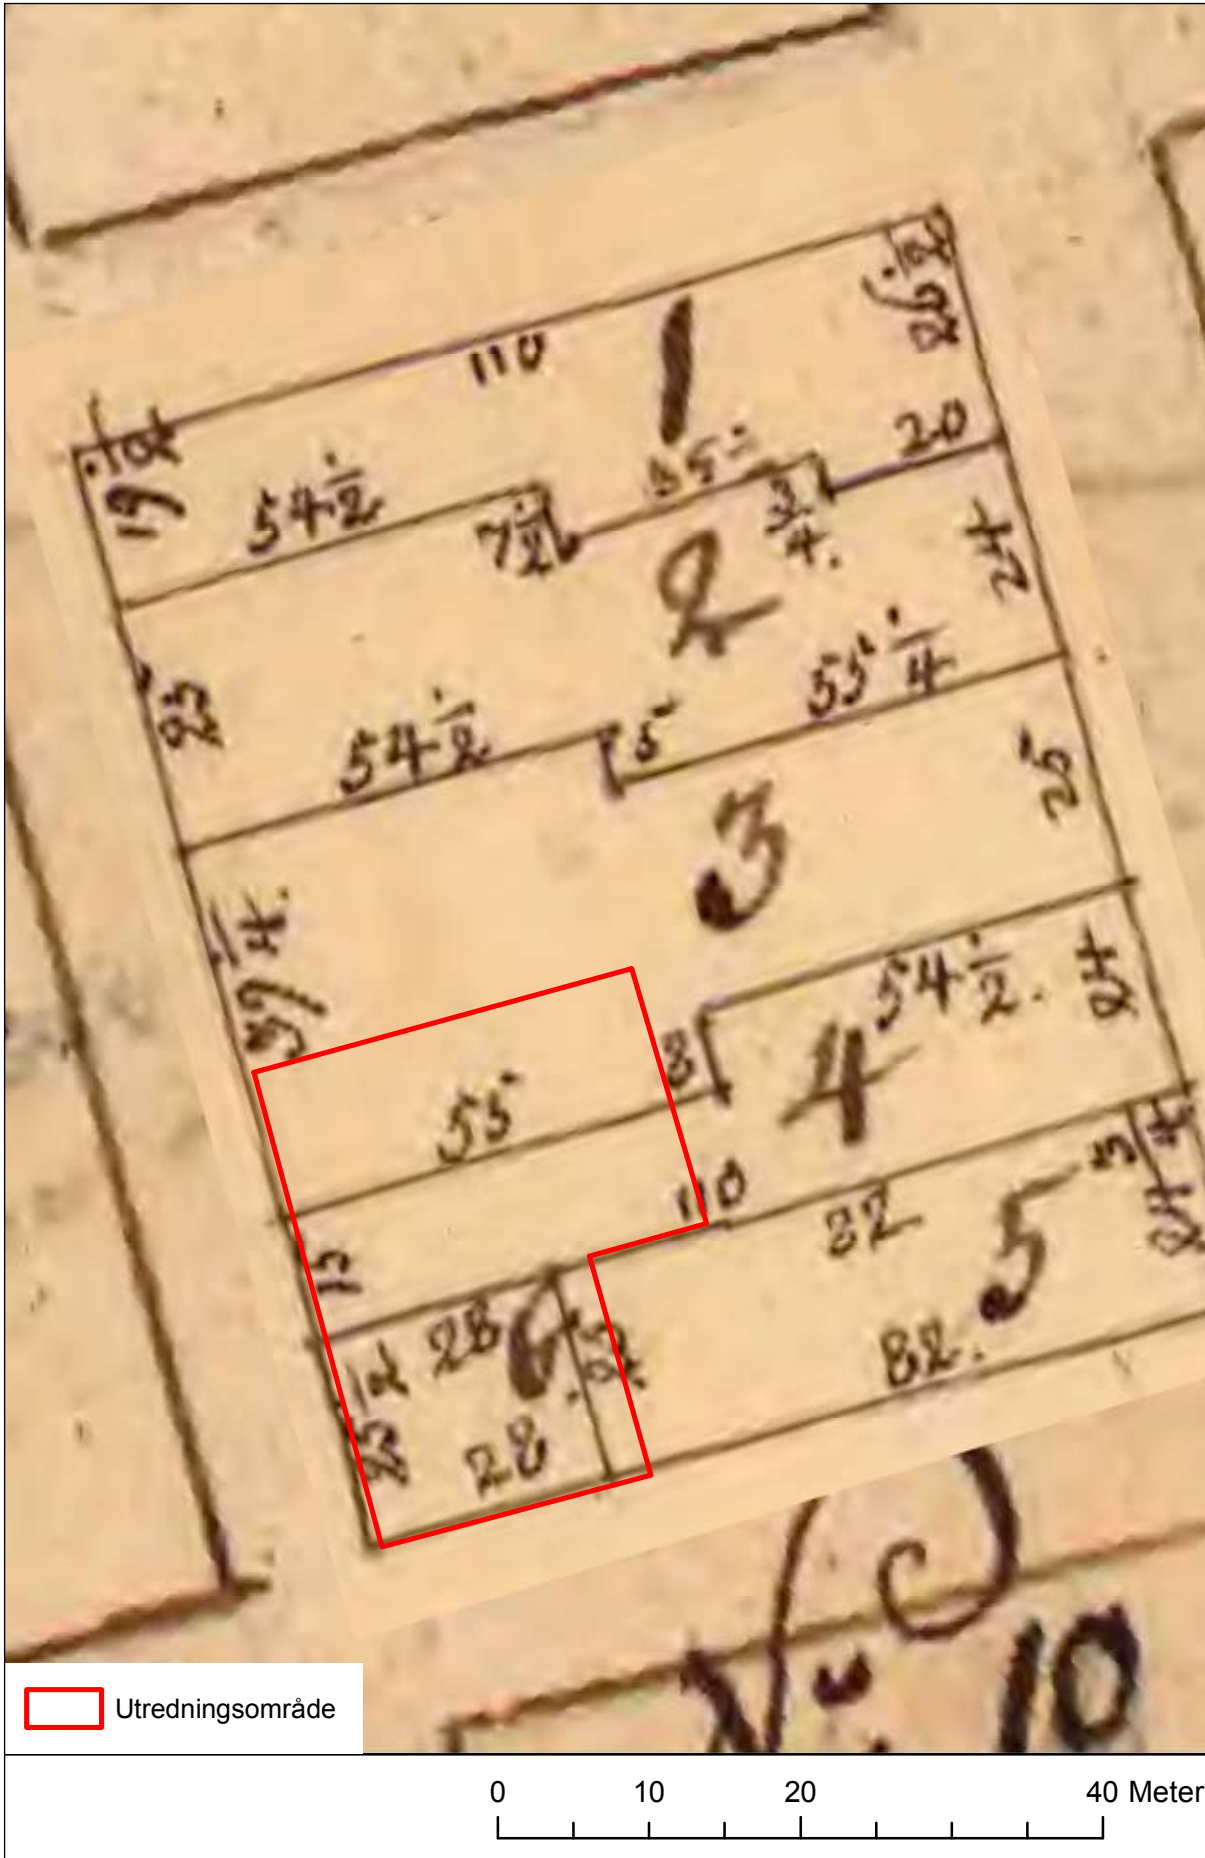 110
1
19 1/2
26 1/2
54 1/2
7 1/2
55
3/4
20
2
24
23
54 1/2
5
55 1/4
3
25
39 1/4
54 1/2
24
8
4
55
110
15
82
5
3/4
24
28
6
82
28
No 10
Utredningsområde
0 10 20 40 Meter